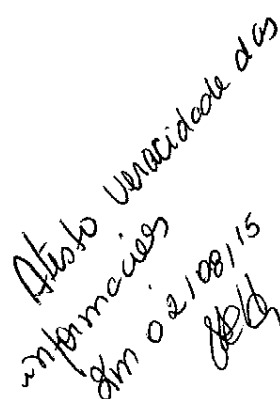 Atesto veracidade das
informações
Em 02/08/15